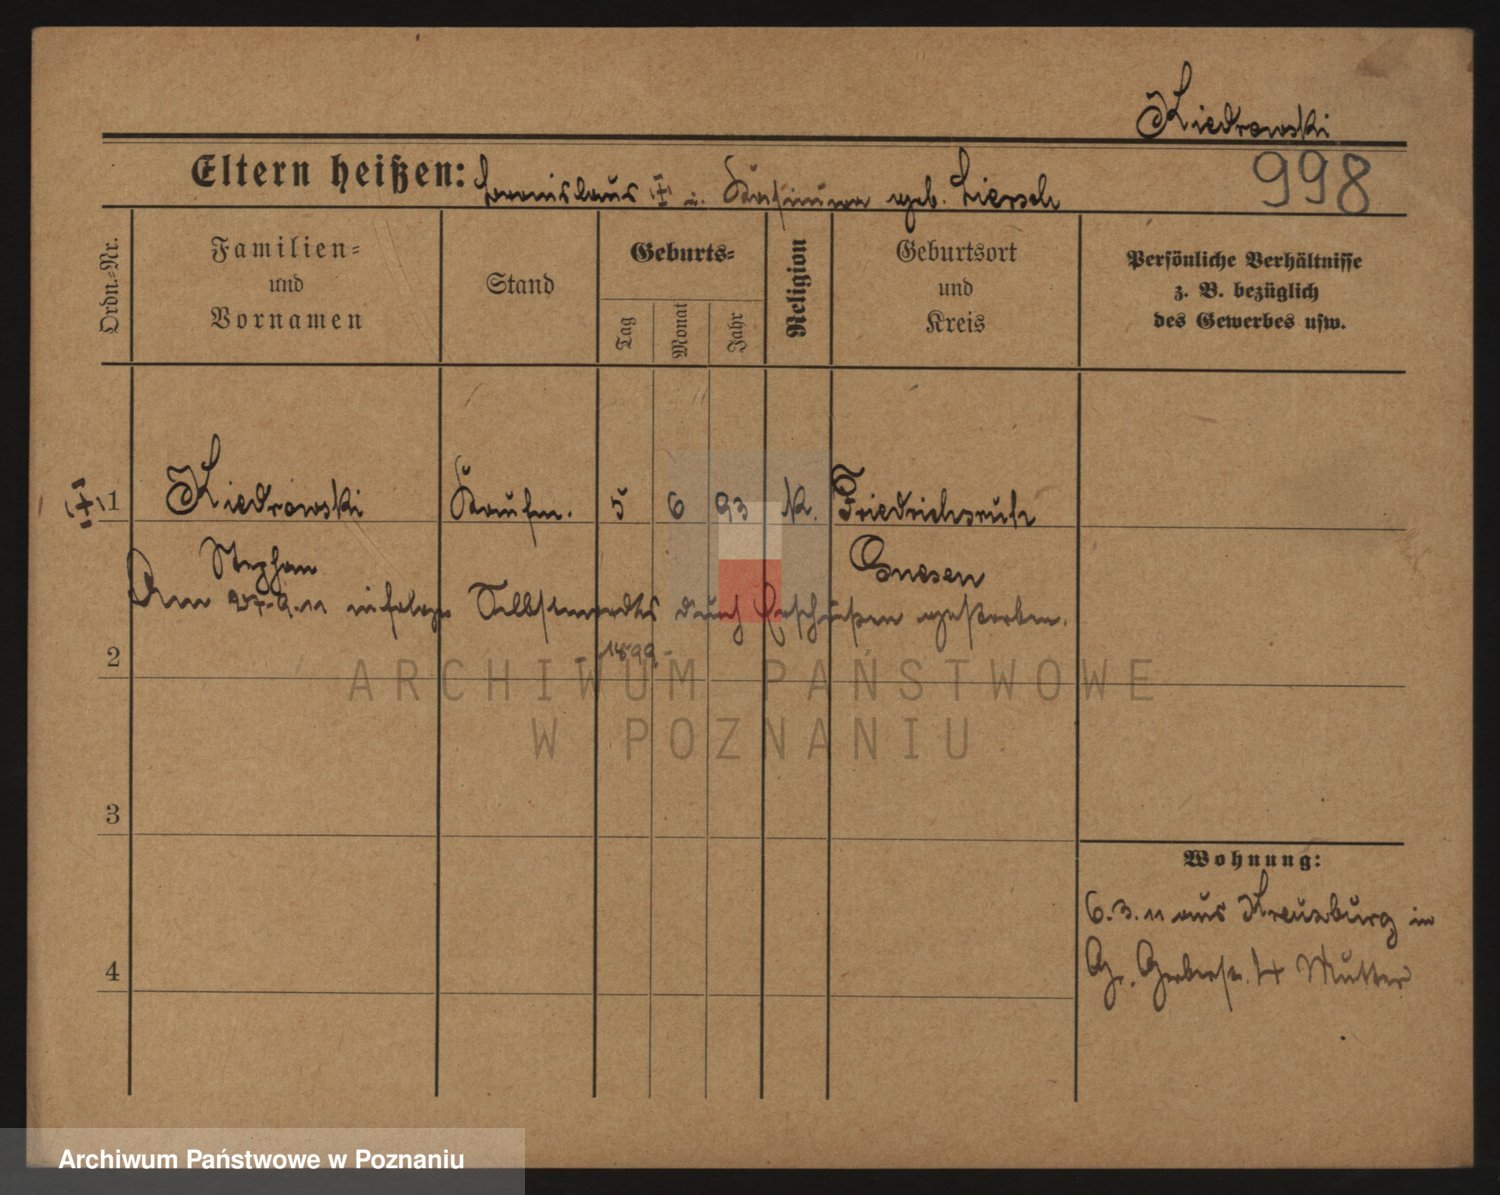 Kiedrowski
998
Eltern heißen: Bronislaus u. Kasimira geb. Liersch
Ordn.-Nr.
Familien-
und
Vornamen
Stand
Geburts-
Tag
Monat
Jahr
Religion
Geburtsort
und
Kreis
Persönliche Verhältnisse
z. B. bezüglich
des Gewerbes usw.
1 Kiedrowski Kaufm. 5 6 93 K. Friedrichsruh
Stephan Gnesen
Am 27.9.11 infolge Selbstmordes durch Erschießen gestorben.
- 1899 -
2
3
4
Wohnung:
6.3.11 aus Kreuzburg in
Gr. Gerberstr. 14 Mutter
ARCHIWUM PAŃSTWOWE
W POZNANIU
Archiwum Państwowe w Poznaniu